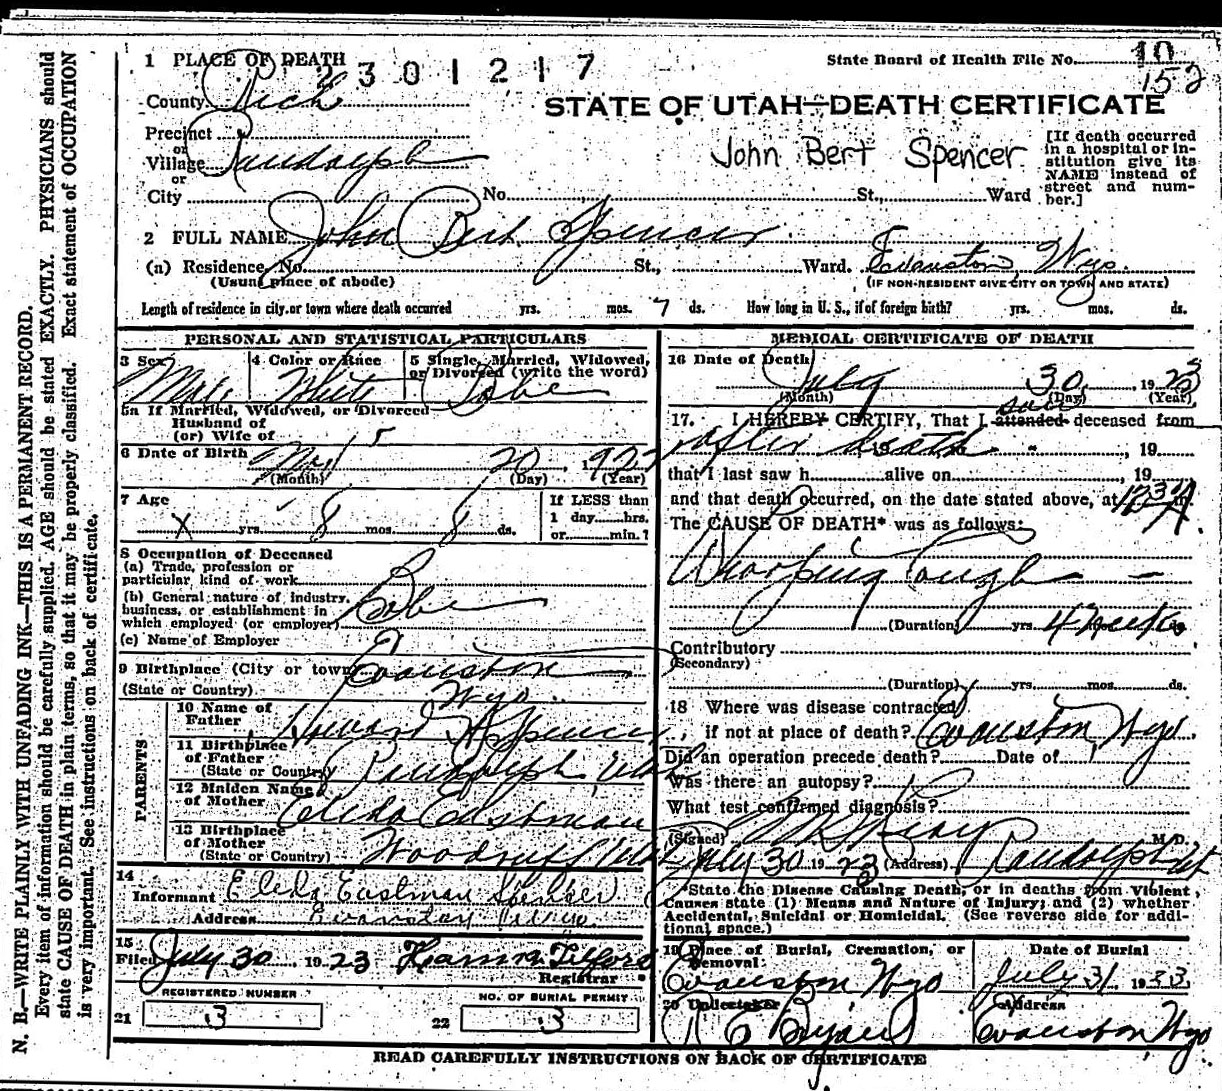 N. B.—WRITE PLAINLY WITH UNFADING INK—THIS IS A PERMANENT RECORD.
Every item of information should be carefully supplied. AGE should be stated EXACTLY. PHYSICIANS should
state CAUSE OF DEATH in plain terms, so that it may be properly classified. Exact statement of OCCUPATION
is very important. See instructions on back of certificate.
1 PLACE OF DEATH
2301217
State Board of Health File No. 10
152
County Rich
STATE OF UTAH—DEATH CERTIFICATE
Precinct
or
Village Randolph
or
City No. St., Ward
John Bert Spencer
[If death occurred
in a hospital or in-
stitution give its
NAME instead of
street and num-
ber.]
2 FULL NAME John Bert Spencer
(a) Residence, No. St., Ward. Evanston, Wyo.
(Usual place of abode) (IF NON-RESIDENT GIVE CITY OR TOWN AND STATE)
Length of residence in city or town where death occurred yrs. mos. 7 ds. How long in U. S., if of foreign birth? yrs. mos. ds.
PERSONAL AND STATISTICAL PARTICULARS
3 Sex Male
4 Color or Race White
5 Single, Married, Widowed,
or Divorced (write the word)
Babe
5a If Married, Widowed, or Divorced
Husband of
(or) Wife of
6 Date of Birth Nov 20, 192
(Month) (Day) (Year)
7 Age
x yrs. 8 mos. 8 ds.
If LESS than
1 day hrs.
or min.?
8 Occupation of Deceased
(a) Trade, profession or
particular kind of work
(b) General nature of industry,
business, or establishment in
which employed (or employer) Babe
(c) Name of Employer
9 Birthplace (City or town) Evanston
(State or Country) Wyo.
PARENTS
10 Name of
Father Howard Spencer
11 Birthplace
of Father
(State or Country) Randolph, Utah
12 Maiden Name
of Mother Eleda Eastman
13 Birthplace
of Mother
(State or Country) Woodruff Utah
14
Informant Eleda Eastman Spencer
Address Evanston Wyo.
15
Filed July 30 1923
Registrar
REGISTERED NUMBER
21 3
NO. OF BURIAL PERMIT
22 3
MEDICAL CERTIFICATE OF DEATH
16 Date of Death July 30, 1923
(Month) (Day) (Year)
17. I HEREBY CERTIFY, That I attended saw deceased from
after death , 19
that I last saw h alive on , 19
and that death occurred, on the date stated above, at m.
The CAUSE OF DEATH* was as follows:
Whooping Cough
(Duration) yrs. 4 weeks ds.
Contributory
(Secondary)
(Duration) yrs. mos. ds.
18 Where was disease contracted
if not at place of death? Evanston, Wyo.
Did an operation precede death? Date of
Was there an autopsy?
What test confirmed diagnosis?
(Signed) M.D.
July 30 1923 (Address) Randolph Ut
*State the Disease Causing Death, or in deaths from Violent
Causes state (1) Means and Nature of Injury; and (2) whether
Accidental, Suicidal or Homicidal. (See reverse side for addi-
tional space.)
19 Place of Burial, Cremation, or
Removal
Evanston Wyo
Date of Burial
July 31 1933
20 Undertaker
Bryan
Address
Evanston Wyo
READ CAREFULLY INSTRUCTIONS ON BACK OF CERTIFICATE